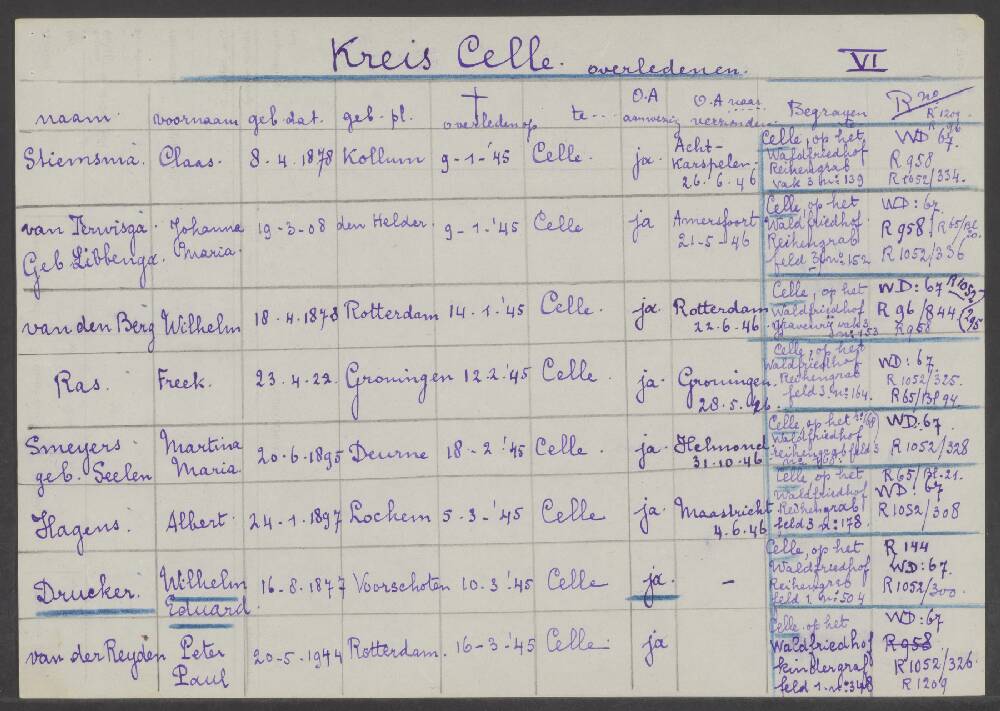 Kreis Celle. overledenen. VI
naam. voornaam geb dat. geb-pl. † overleden op te... O.A aanwezig O.A naar verzonden Begraven te R no R 1209 R 96
Stiemsma. Claas. 8.4.1878 Kollum 9-1-'45 Celle. ja. Acht-Karspelen. 26.6.46 Celle, op het Waldfriedhof Reihengrab vak 3 no 139 WD 67. R 958 R 1052/334.
van Terwisga. Geb Libbenga. Johanna Maria. 19-3-08 den Helder. 9-1.'45 Celle ja Amersfoort 21-5-46 Celle, op het Waldfriedhof. Reihengrab feld 3 no 152 WD: 67 R 958 R 65/Bl 20. R 1052/336
van den Berg Wilhelm 18.4.1878 Rotterdam 14.1.'45 Celle. ja. Rotterdam 22.6.46 Celle, op het Waldfriedhof vak 3 no 153 WD: 67 R 1052/295 R 96/844 R 958
Ras. Freek. 23.4.22. Groningen 12.2.'45 Celle. ja. Groningen. 28.5.46. Celle, op het Waldfriedhof Reihengrab feld 3. no 164. WD: 67. R 1052/325. R 65/Bl 94.
Smeyers geb. Seelen Martina Maria 20-6.1895 Deurne 18-2'45 Celle. ja. Helmond 31.10.46 Celle, op het Waldfriedhof Reihengrab feld 3 no 168. WD. 67 R 1052/328
Hagens. Albert. 24-1.1897 Lochem 5-3-'45 Celle ja. Maastricht 4.6.46 Celle, op het Waldfriedhof Reihengrab feld 3 no: 178. R 65/Bl. 21. WD: 67 R 1052/308
Drucker. Wilhelm Eduard. 16-8.1877 Voorschoten 10.3.'45 Celle ja. - Celle, op het Waldfriedhof Reihengrab feld 1. no: 504 R 144 WD: 67. R 1052/300.
van der Reyden Peter Paul 20-5.1944 Rotterdam. 16-3-'45 Celle. ja Celle. op het Waldfriedhof kindergraf feld 1. no: 348 WD: 67 R 958 R 1052/326. R 1209